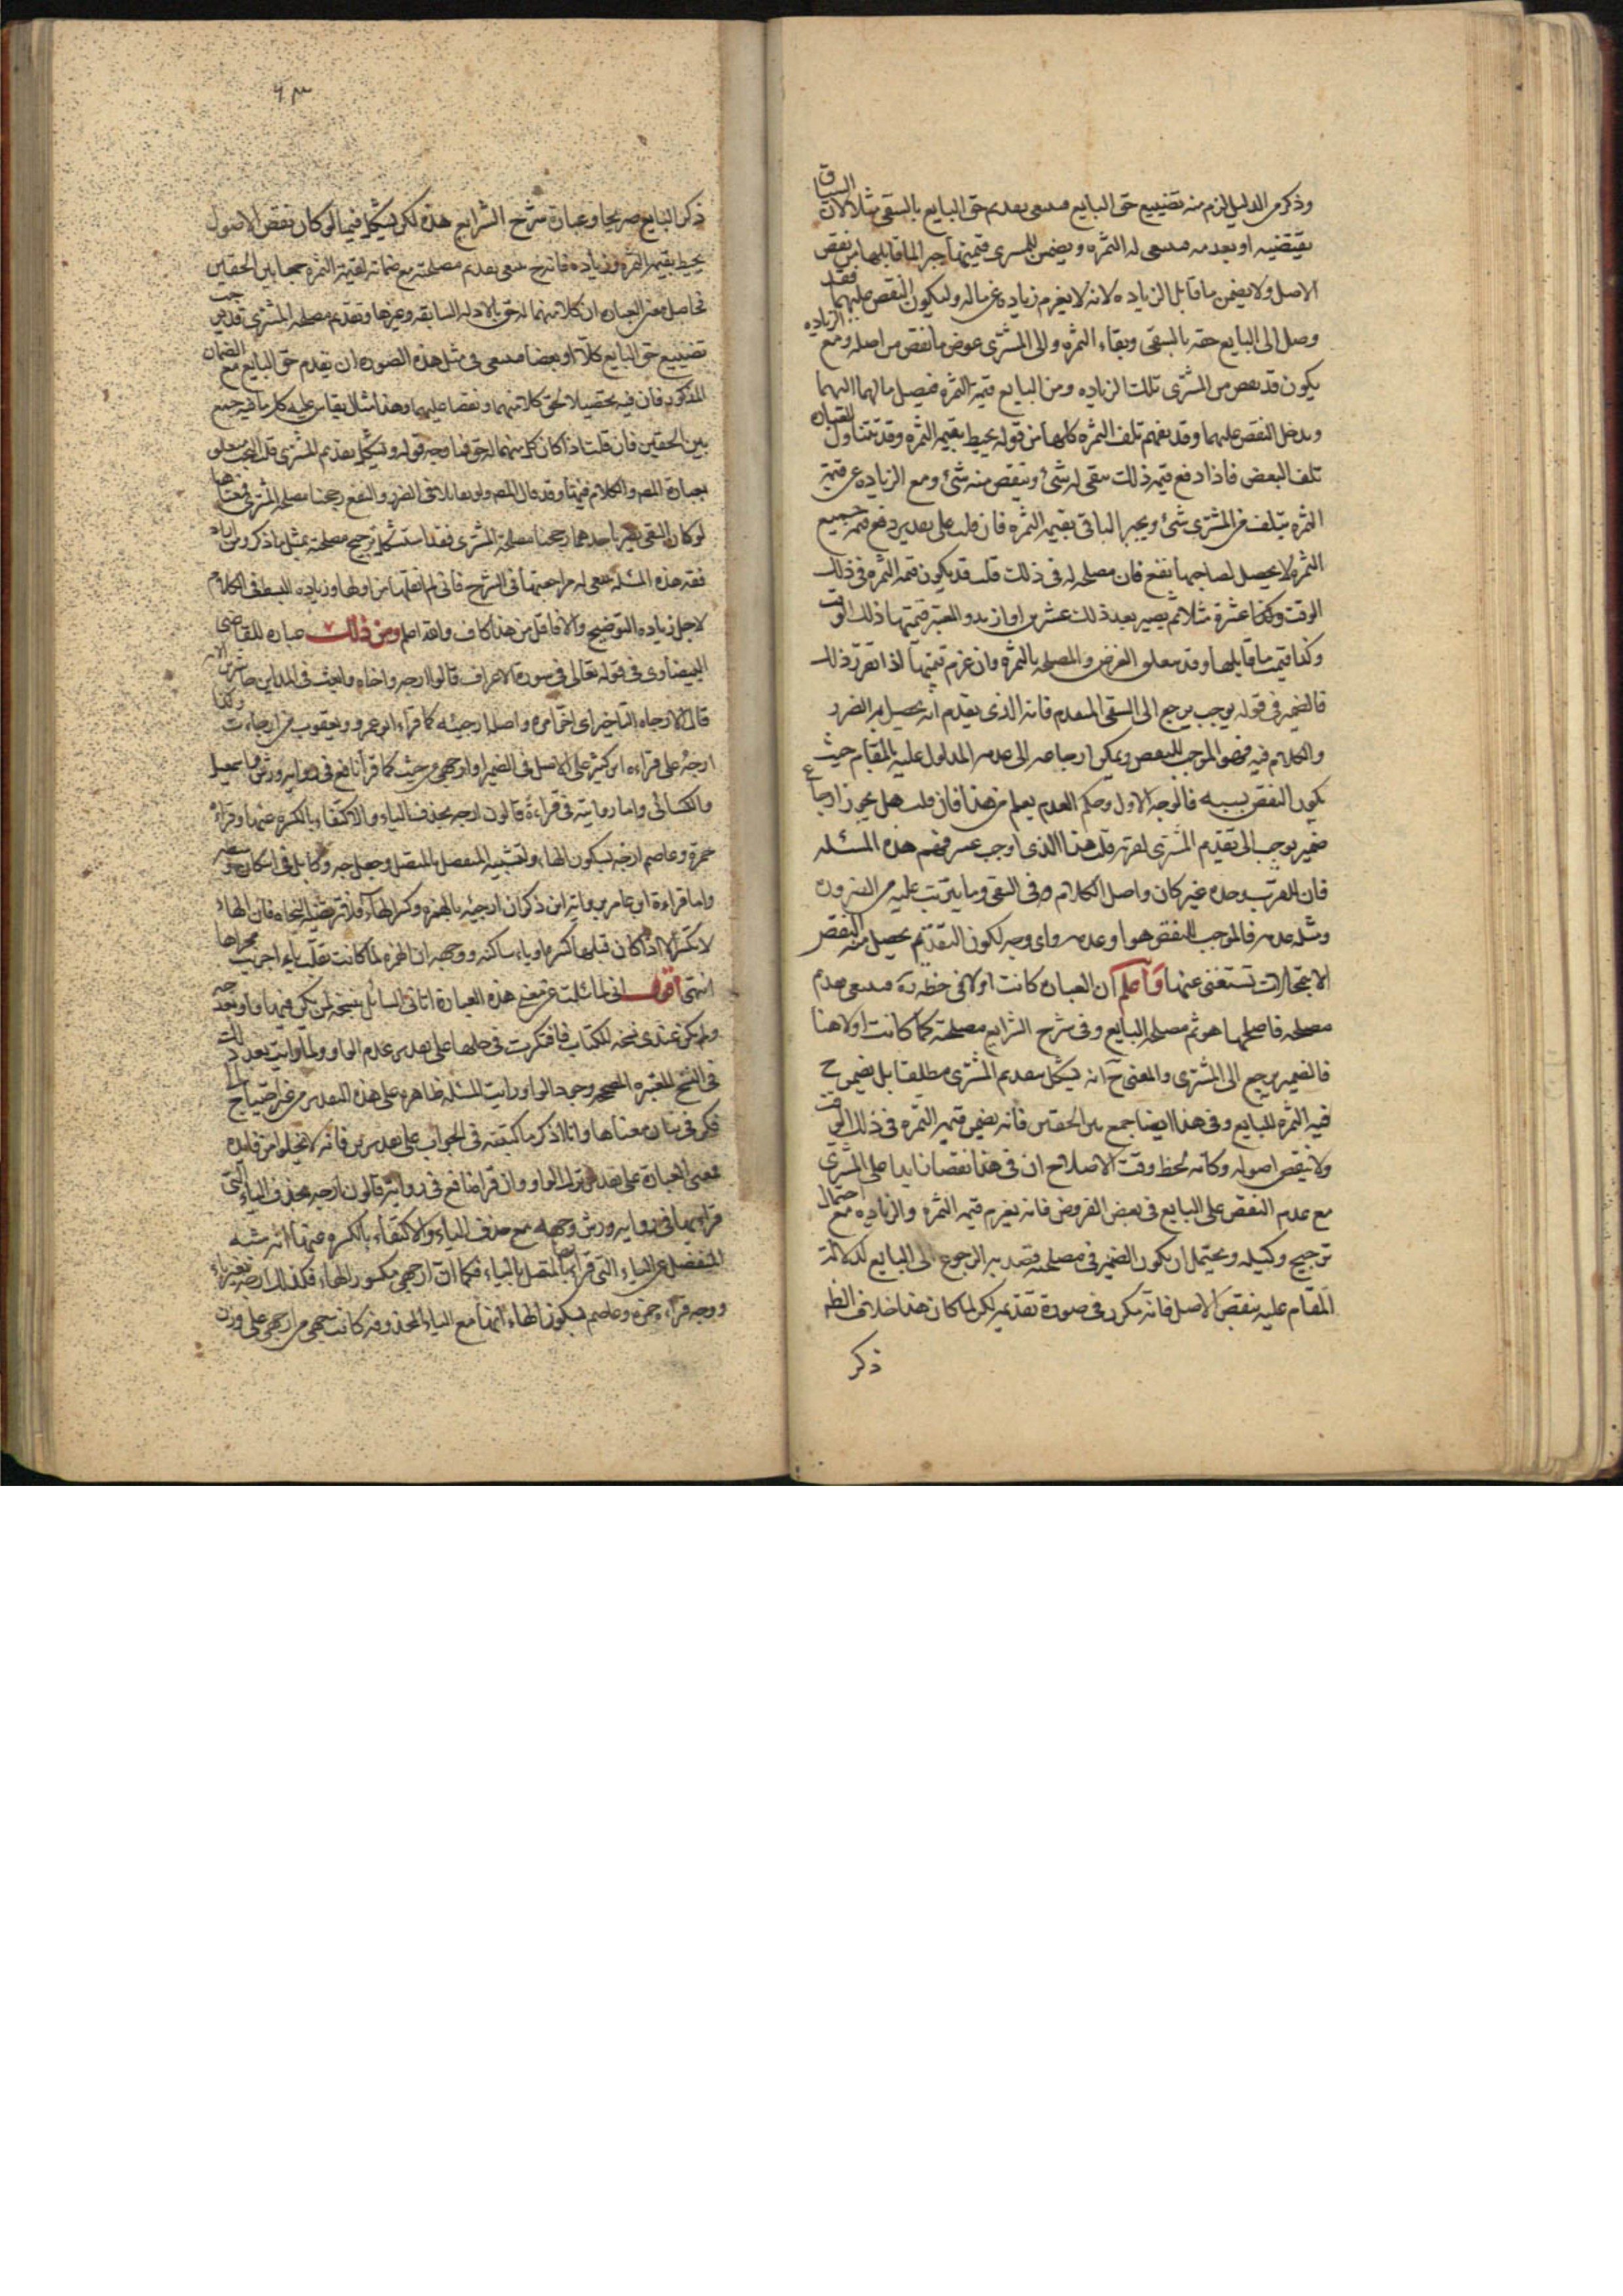 وذكر من الدليل لزم منه تضييع حق البايع فينبغى تقديم حق البايع بالسقى مثلا لان السياق
يقتضيه او بعدمه فينبغى له الثمره ويضمن للمشترى قيمتها جبرا لما قابلها من نقص
الاصل ولا يضمن ما قابل الزياده لانه لا يغرم زياده عن ماله وليكون النقص عليهما فقد
وصل الى البايع حقه بالسقى وبقاء الثمره والى المشترى عوض ما نقص من اصله ومع الزياده
يكون قد نقص من المشترى تلك الزياده ومن البايع قيمة الثمره فيصل مالهما اليهما
ويدخل النقص عليهما وقد يفهم تلف الثمره كلها من قوله يحيط بقيمه الثمره وقد تتناول العباره
تلف البعض فاذا دفع قيمه ذلك يبقى له شئ وينقص منه شئ ومع الزياده عن قيمة
الثمره يتلف من المشترى شئ ويجبر الباقى بقيمه الثمره فان قلت على تقدير دفع قيمه جميع
الثمره لا يحصل لصاحبها نفع فان مصلحه له فى ذلك قلت قد يكون قيمه الثمره فى ذلك
الوقت عشرة مثلا ثم يصير بعد ذلك عشرين او ازيد والمعتبر قيمتها ذلك الوقت
وكذا قيمه ما قابلها وقد يتعلق الغرض والمصلحه بالثمره وان غرم قيمتها اذا تقرر ذلك
فالضمير فى قوله يوجب يرجع الى السقى المتقدم فانه الذى يتقدم انه يحصل به الضرر
والكلام فيه فهو الموجب للنقص ويمكن ارجاعه الى عدمه المدلول عليه بالمقام حيث
يكون النقص بسببه فالوجه الاول وحكم العدم يعلم من هذا فان قلت هل يجوز ارجاع
ضمير يوجب الى تقديم المشترى لقربه قلت هذا الذى اوجب عسر فهم هذه المسئله
فان القرب وحده غير كاف واصل الكلام فى السقى وما يترتب عليه من الضرر
ومثله عدمه فالموجب للنقص هو او عدمه واى وجه لكون التقديم يحصل منه النقص
الا بتمحلات تستغنى عنها واعلم ان العباره كانت اولا فى خطه ره فينبغى عدم
مصلحه فاصلحها هو ثم مصلحه البايع وفى شرح الشرايع مصلحته كما كانت اولا هنا
فالضمير يرجع الى المشترى والمعنى ح انه يشكل تقديم المشترى مطلقا بل يضمن ح
قيمه الثمره للبايع وفى هذا ايضا جمع بين الحقين فانه يضمن قيمه الثمره فى ذلك الوقت
ولا ينقص اصوله وكانه لحظ وقت الاصلاح ان فى هذا نقصانا زايدا على المشترى
مع عدم النقص على البايع فى بعض الفروض فانه يغرم قيمه الثمره والزياده مع احتمال
ترجيح وكيله ويحتمل ان يكون الضمير فى مصلحته قصد به الرجوع الى البايع لدلالة
المقام عليه بنقص الاصل فانه يكون فى صورة تقديمه لكن لما كان هذا خلاف الظ
ذكر
٩٣
ذكر البايع صريحا وعبارة شرح الشرايع هذه لكن يشكل فيما لو كان نقص الاصول
يحيط بقيمه الثمره وزياده فانه ح ينبغى تقديم مصلحته مع ضمانه لقيمة الثمره جمعا بين الحقين
فحاصل معنى العباره ان كلا منهما له حق بالادله السابقه وغيرها وتقديم مصلحه المشترى قد يوجب
تضييع حق البايع كلا او بعضا فينبغى فى مثل هذه الصوره ان يقدم حق البايع مع الضمان
المذكور فان فيه تحصيلا لحق كلا منهما ونقصا عليهما وهذا مثال يقاس عليه كل ما فيه جمع
بين الحقين فان قلت اذا كان كل منهما له حق فما وجه قوله ويشكل تقديم المشترى قلت الجواب يتعلق
بعبارة المصر والكلام فيها وقد قال المصر ولو تقابلا فى الضرر والنفع رجحنا مصلحه المشترى فمعناها
لو كان السقى يضر باحدهما رجحنا مصلحة المشترى فقد استشكل ترجيح مصلحته بمثل ما ذكر ومن اراد
فقه هذه المسئله ينبغى له مراجعتها فى الشرح فانى لم انقلها من اولها وزياده البسط فى الكلام
لاجل زياده التوضيح والا فاقل من هذا كاف والله اعلم ومن ذلك عباره للقاضى
البيضاوى فى قوله تعالى فى سورة الاعراف قالوا ارجه واخاه وابعث فى المداين حاشرين الايه
قال الارجاء التاخير اى اخر امره واصله ارجئه كما قراء ابو عمرو ويعقوب من ارجات وكذا
ارجئه على قراءه ابن كثير على الاصل فى الضمير او ارجهى من ارجيت كما قرأ نافع فى روايه ورش واسمعيل
والكسائى واما روايته فى قراءة قالون ارجه بحذف الياء والاكتفاء بالكسره عنها وقراءة
حمزة وعاصم ارجه بسكون الهاء ولتشبيه المنفصل بالمتصل وجعل جه وكابل فى اسكان وسطه
واما قراءة ابن عامر برواية ابن ذكوان ارجئه بالهمزه وكسر الهاء فلا ترتضيه النحاه فان الهاء
لا تكسر الا اذا كان قبلها كسره او ياء ساكنه ووجهه ان الهمزه لما كانت تقلب ياء اجريت مجراها
انتهى اقول انى لما سئلت عن معنى هذه العبارة اتانى السائل بنسخه لم يكن فيها واو بعد جه
ولم يكن عندى نسخه للكتاب فافتكرت فى حلها على تقدير عدم الواو ولما رايت بعد ذلك
فى النسخ المعتبره الصحيحه وجود الواو رايت المسئله ظاهره على هذا التقدير من غير احتياج الى
فكر فى بيان معناها وانا اذكر ما كتبته فى الجواب على تقديرين فانه لا يخلو من فايده
فمعنى العبارة على تقدير ترك الواو وان قرا نافع فى رواية قالون ارجه بحذف الياء التى
قرا بها فى روايه ورش وجهه مع حذف الياء والاكتفاء بالكسره عنها انه شبه
المنفصل عن الياء التى قرا بها بالمتصل بالياء فكما ان ارجهى مكسور الهاء فكذلك ارجه بغير ياء
ووجه قراءه حمزه وعاصم بسكون الهاء انها مع الياء المحذوفه كانت جهى من ارجهى على وزن